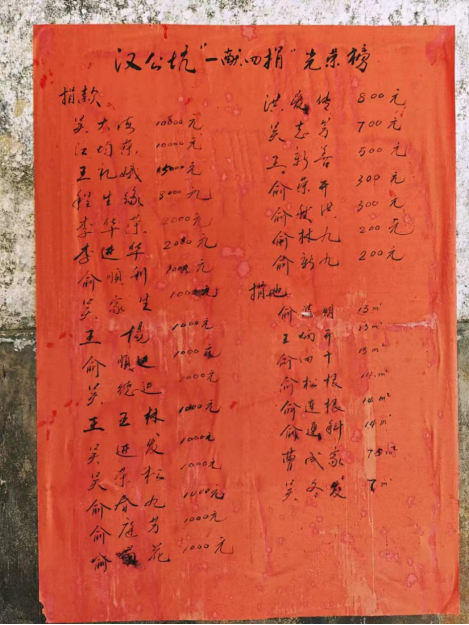 汉公坑"一献四捐"光荣榜
捐款
吴大海 10000元
江均荣 10000元
王礼娥 5000元
程生缘 3000元
李华荣 2000元
李进华 2000元
俞顺利 1000元
吴家生 1000元
王杨 1000元
俞顺迎 1000元
吴德迎 1000元
王玉林 1000元
吴进发 1000元
吴荣松 1000元
俞春九 1000元
俞庭芳 1000元
俞花 1000元
洪爱传 800元
吴志芳 700元
王新善 500元
俞荣开 300元
俞洪 300元
俞林九 200元
俞新九 200元
捐地
俞明 15㎡
王炳开 15㎡
俞四十 15㎡
俞松根
俞连根 14㎡
俞逢科 14㎡
曹成家 7.5㎡
吴冬发 7㎡